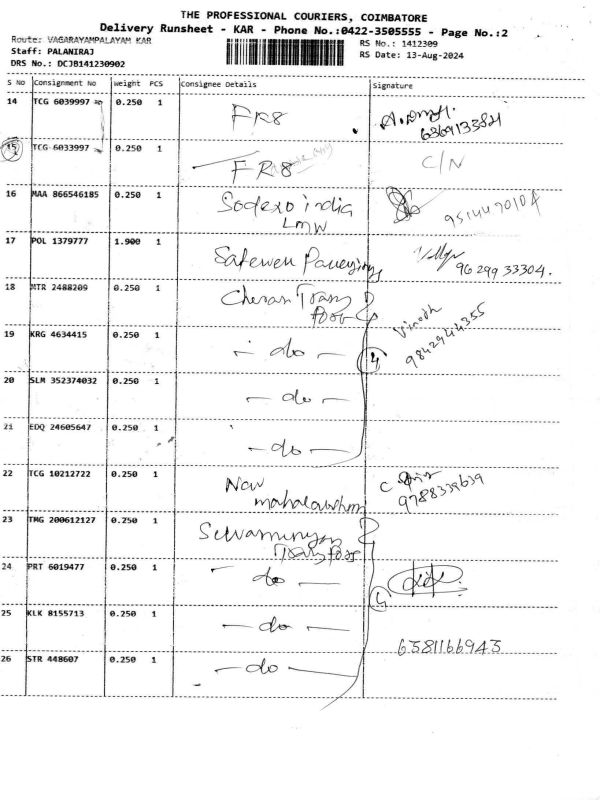 THE PROFESSIONAL COURIERS, COIMBATORE
Delivery Runsheet - KAR - Phone No.:0422-3505555 - Page No.:2
Route: VAGARAYAMPALAYAM KAR
RS No.: 1412309
Staff: PALANIRAJ
RS Date: 13-Aug-2024
DRS No.: DCJB141230902
S No Consignment No Weight PCS Consignee Details Signature
14 TCG 6039997 0.250 1 FR8
6369133821
15 TCG 6033997 0.250 1 FR8 C/N
16 MAA 866546185 0.250 1 Sodexo india
LMW
17 POL 1379777 1.900 1
96 299 33304.
18 MTR 2488209 0.250 1 Cheran Trans
Port
Vinoth
9842944355
19 KRG 4634415 0.250 1 - do -
4
20 SLM 352374032 0.250 1 - do -
21 EDQ 24605647 0.250 1 - do -
22 TCG 10212722 0.250 1 New
9788339639
23 TMG 200612127 0.250 1
24 PRT 6019477 0.250 1 - do -
5
25 KLK 8155713 0.250 1 - do -
6381166943
26 STR 448607 0.250 1 - do -